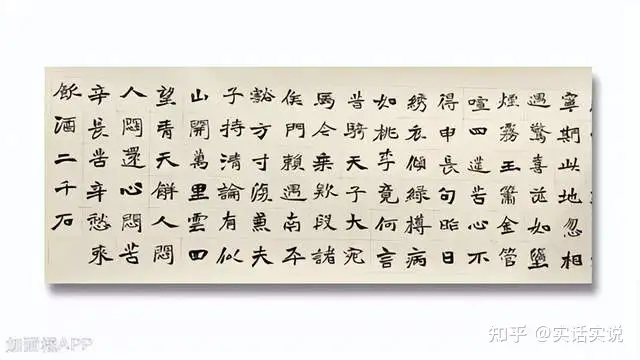 寧期此地忽相
遇驚喜茫如墮
煙霧玉簫金管
喧四筵苦心不
得申長句昨日
綉衣傾綠樽病
如桃李竟何言
昔騎天子大宛
馬今乘款段諸
侯門賴遇南平
豁方寸復兼夫
子持清論有似
山開萬里雲四
望青天解人悶
人悶還心悶苦
辛長苦辛愁來
飲酒二千石
知乎 @实话实说
APP